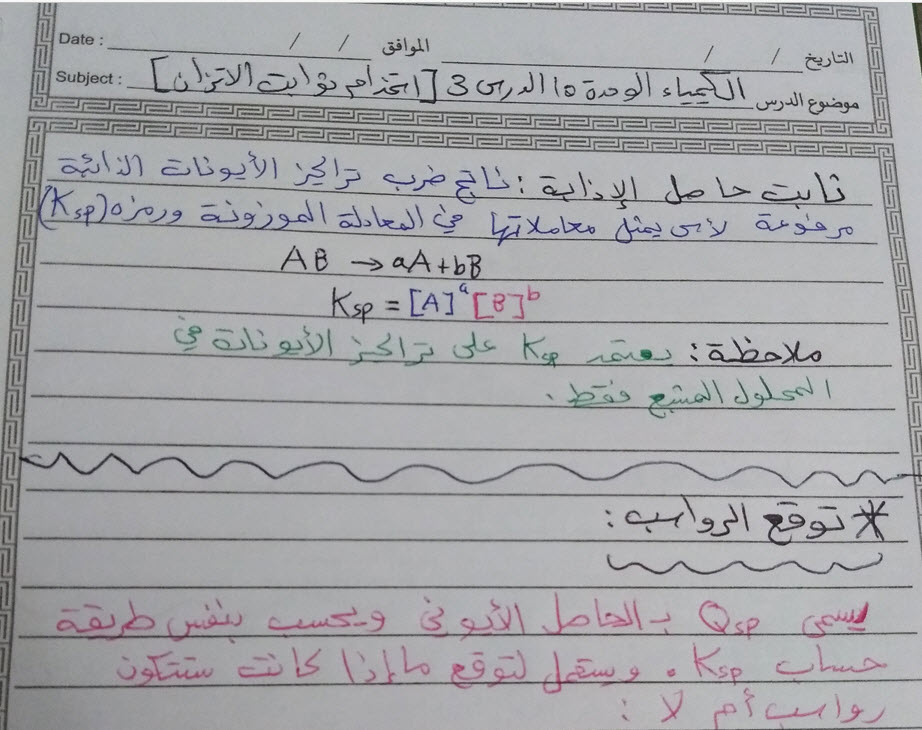 Date : / / الموافق / / التاريخ
Subject : الكيمياء الوحدة 10 الدرس 3 [استخدام ثوابت الاتزان] موضوع الدرس
ثابت حاصل الإذابة : ناتج ضرب تراكيز الأيونات الذائبة
مرفوعة لأس يمثل معاملاتها في المعادلة الموزونة ورمزه (Ksp)
AB → aA + bB
Ksp = [A]ᵃ [B]ᵇ
ملاحظة : يعتمد Ksp على تراكيز الأيونات في
المحلول المشبع فقط .
* توقع الرواسب :
يسمى Qsp بـ الحاصل الأيوني ويحسب بنفس طريقة
حساب Ksp . ويستعمل لتوقع ما إذا كانت ستتكون
رواسب أم لا :